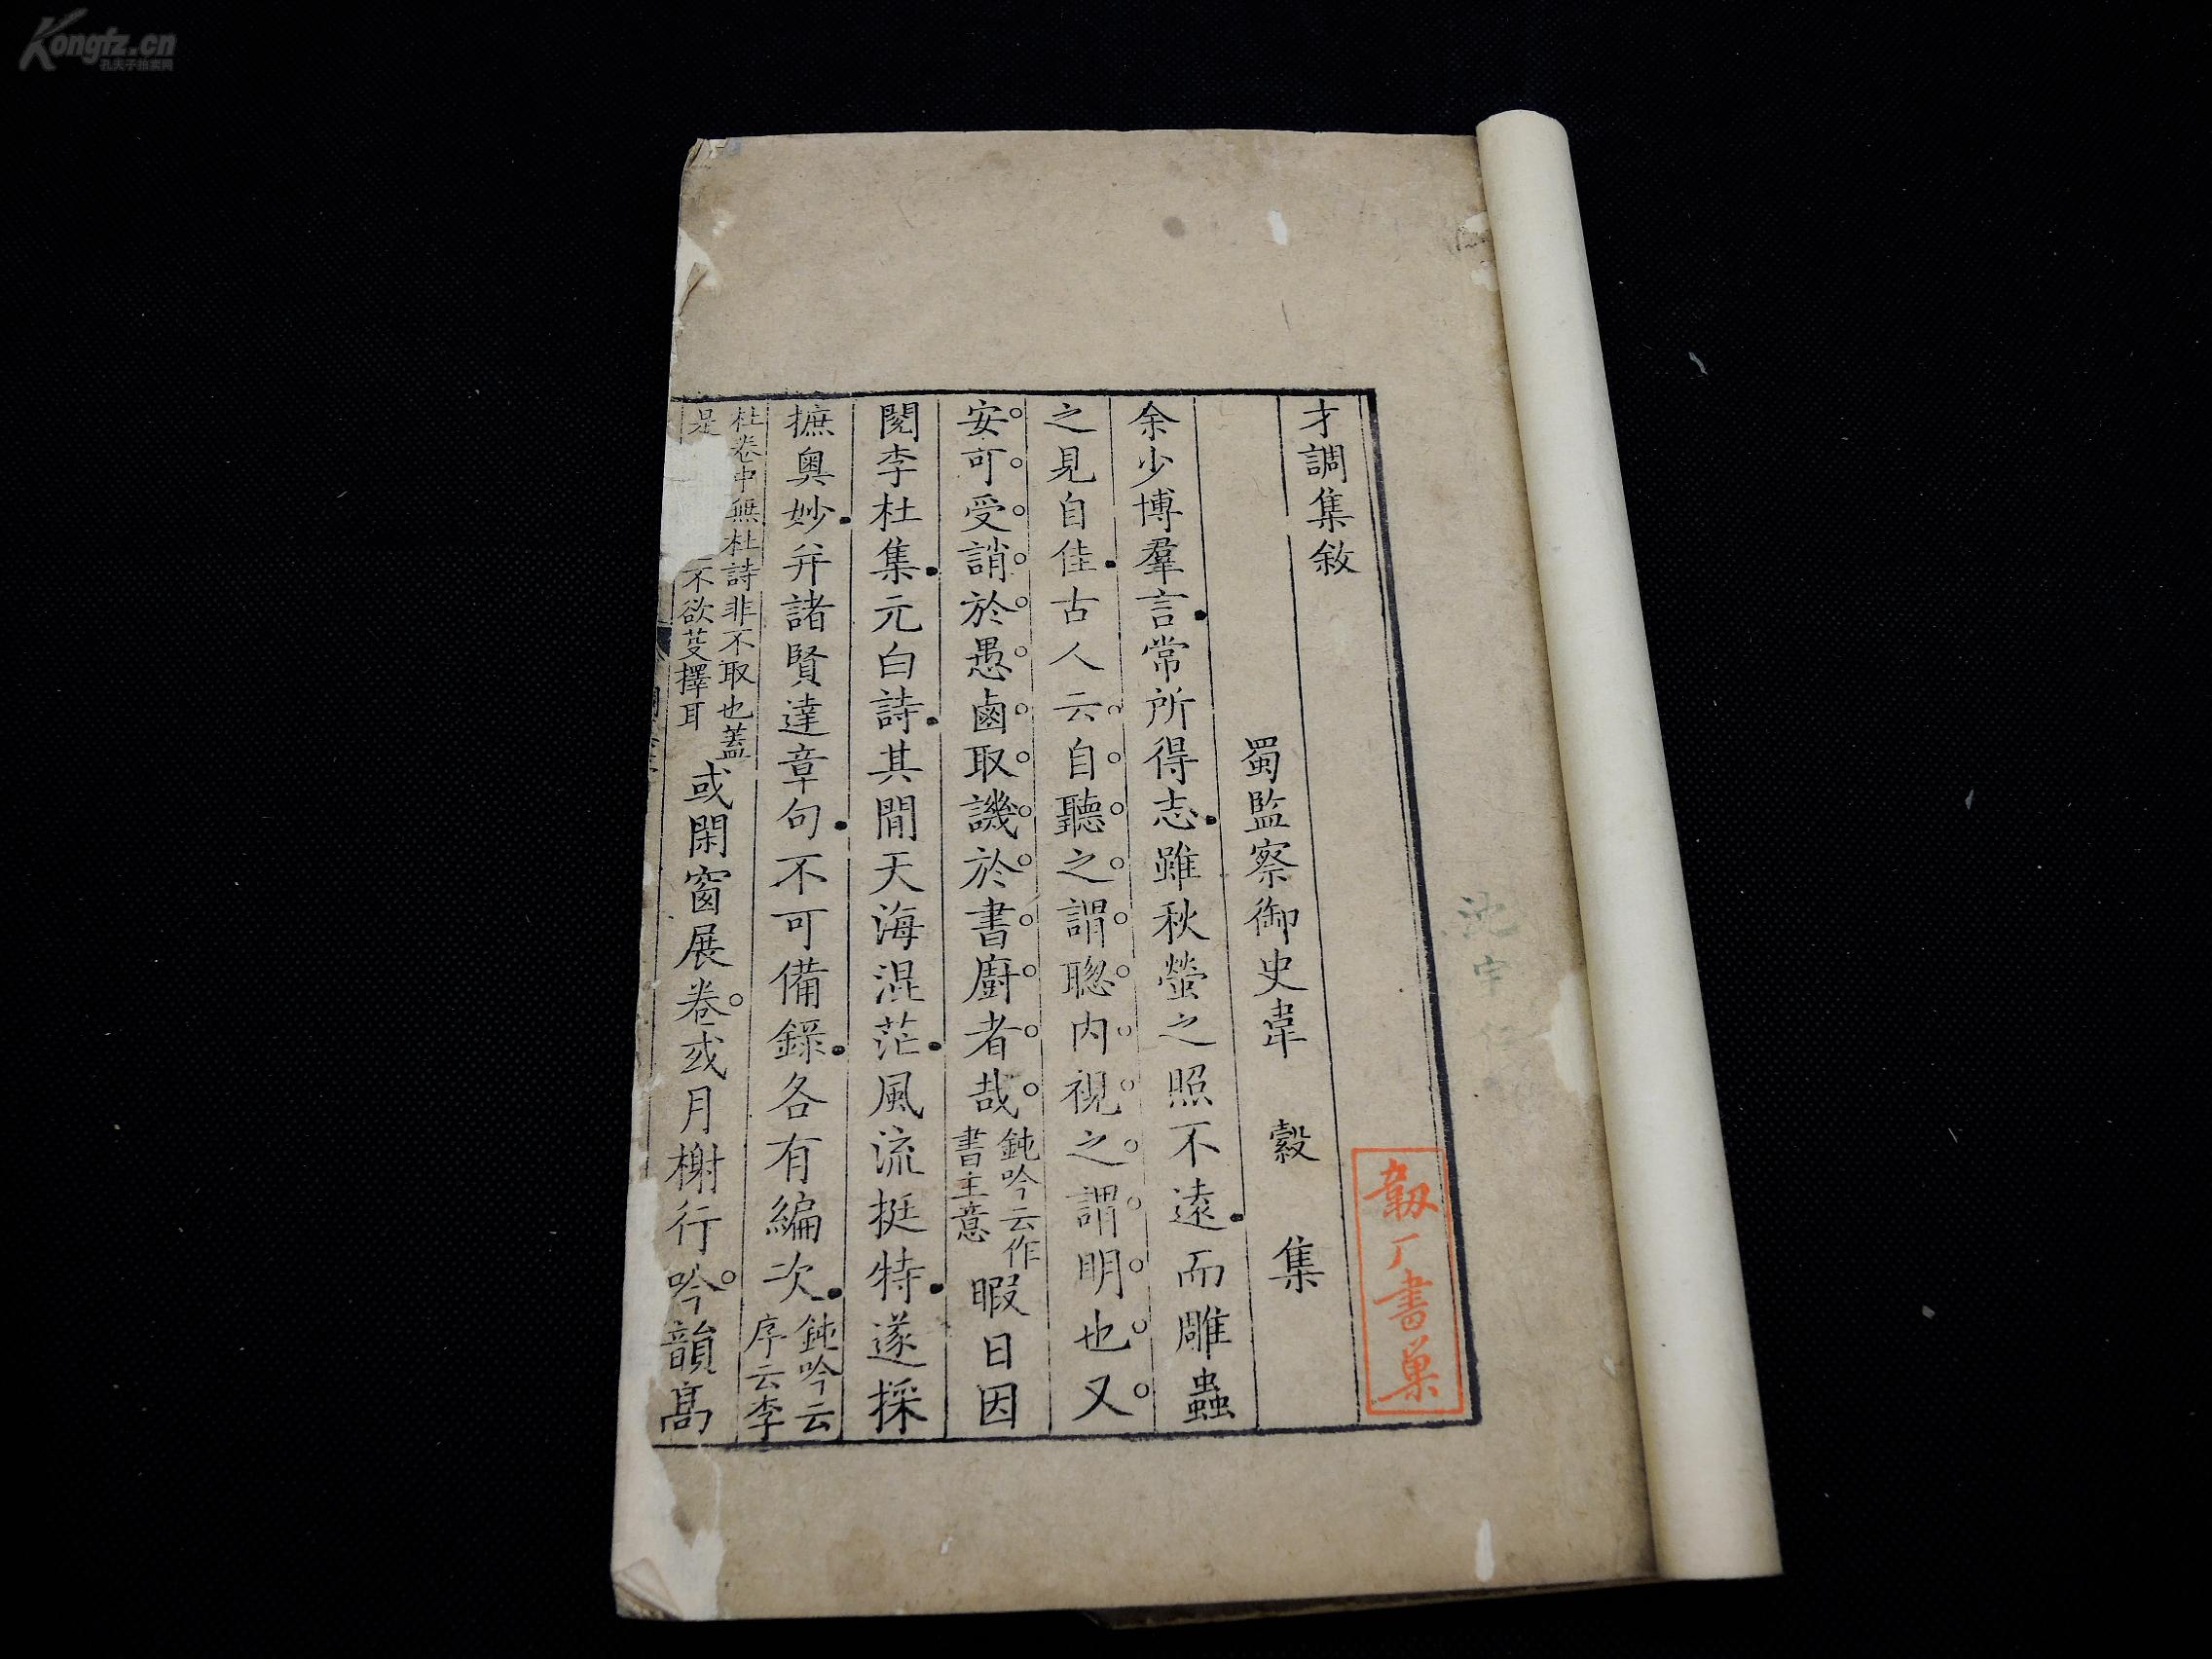 才調集敘
蜀監察御史韋縠集
余少博羣言常所得志雖秋螢之照不遠而雕蟲
之見自佳古人云自聽之謂聰内視之謂明也又
安可受誚於愚鹵取譏於書廚者哉鈍吟云作書主意暇日因
閱李杜集元白詩其間天海混茫風流挺特遂採
摭奥妙并諸賢達章句不可備錄各有編次鈍吟云序云李
杜卷中無杜詩非不取也蓋是不欲芟擇耳或閑窗展卷或月榭行吟韻髙
韌厂書巢
沈
Kongfz.cn
孔夫子拍卖网